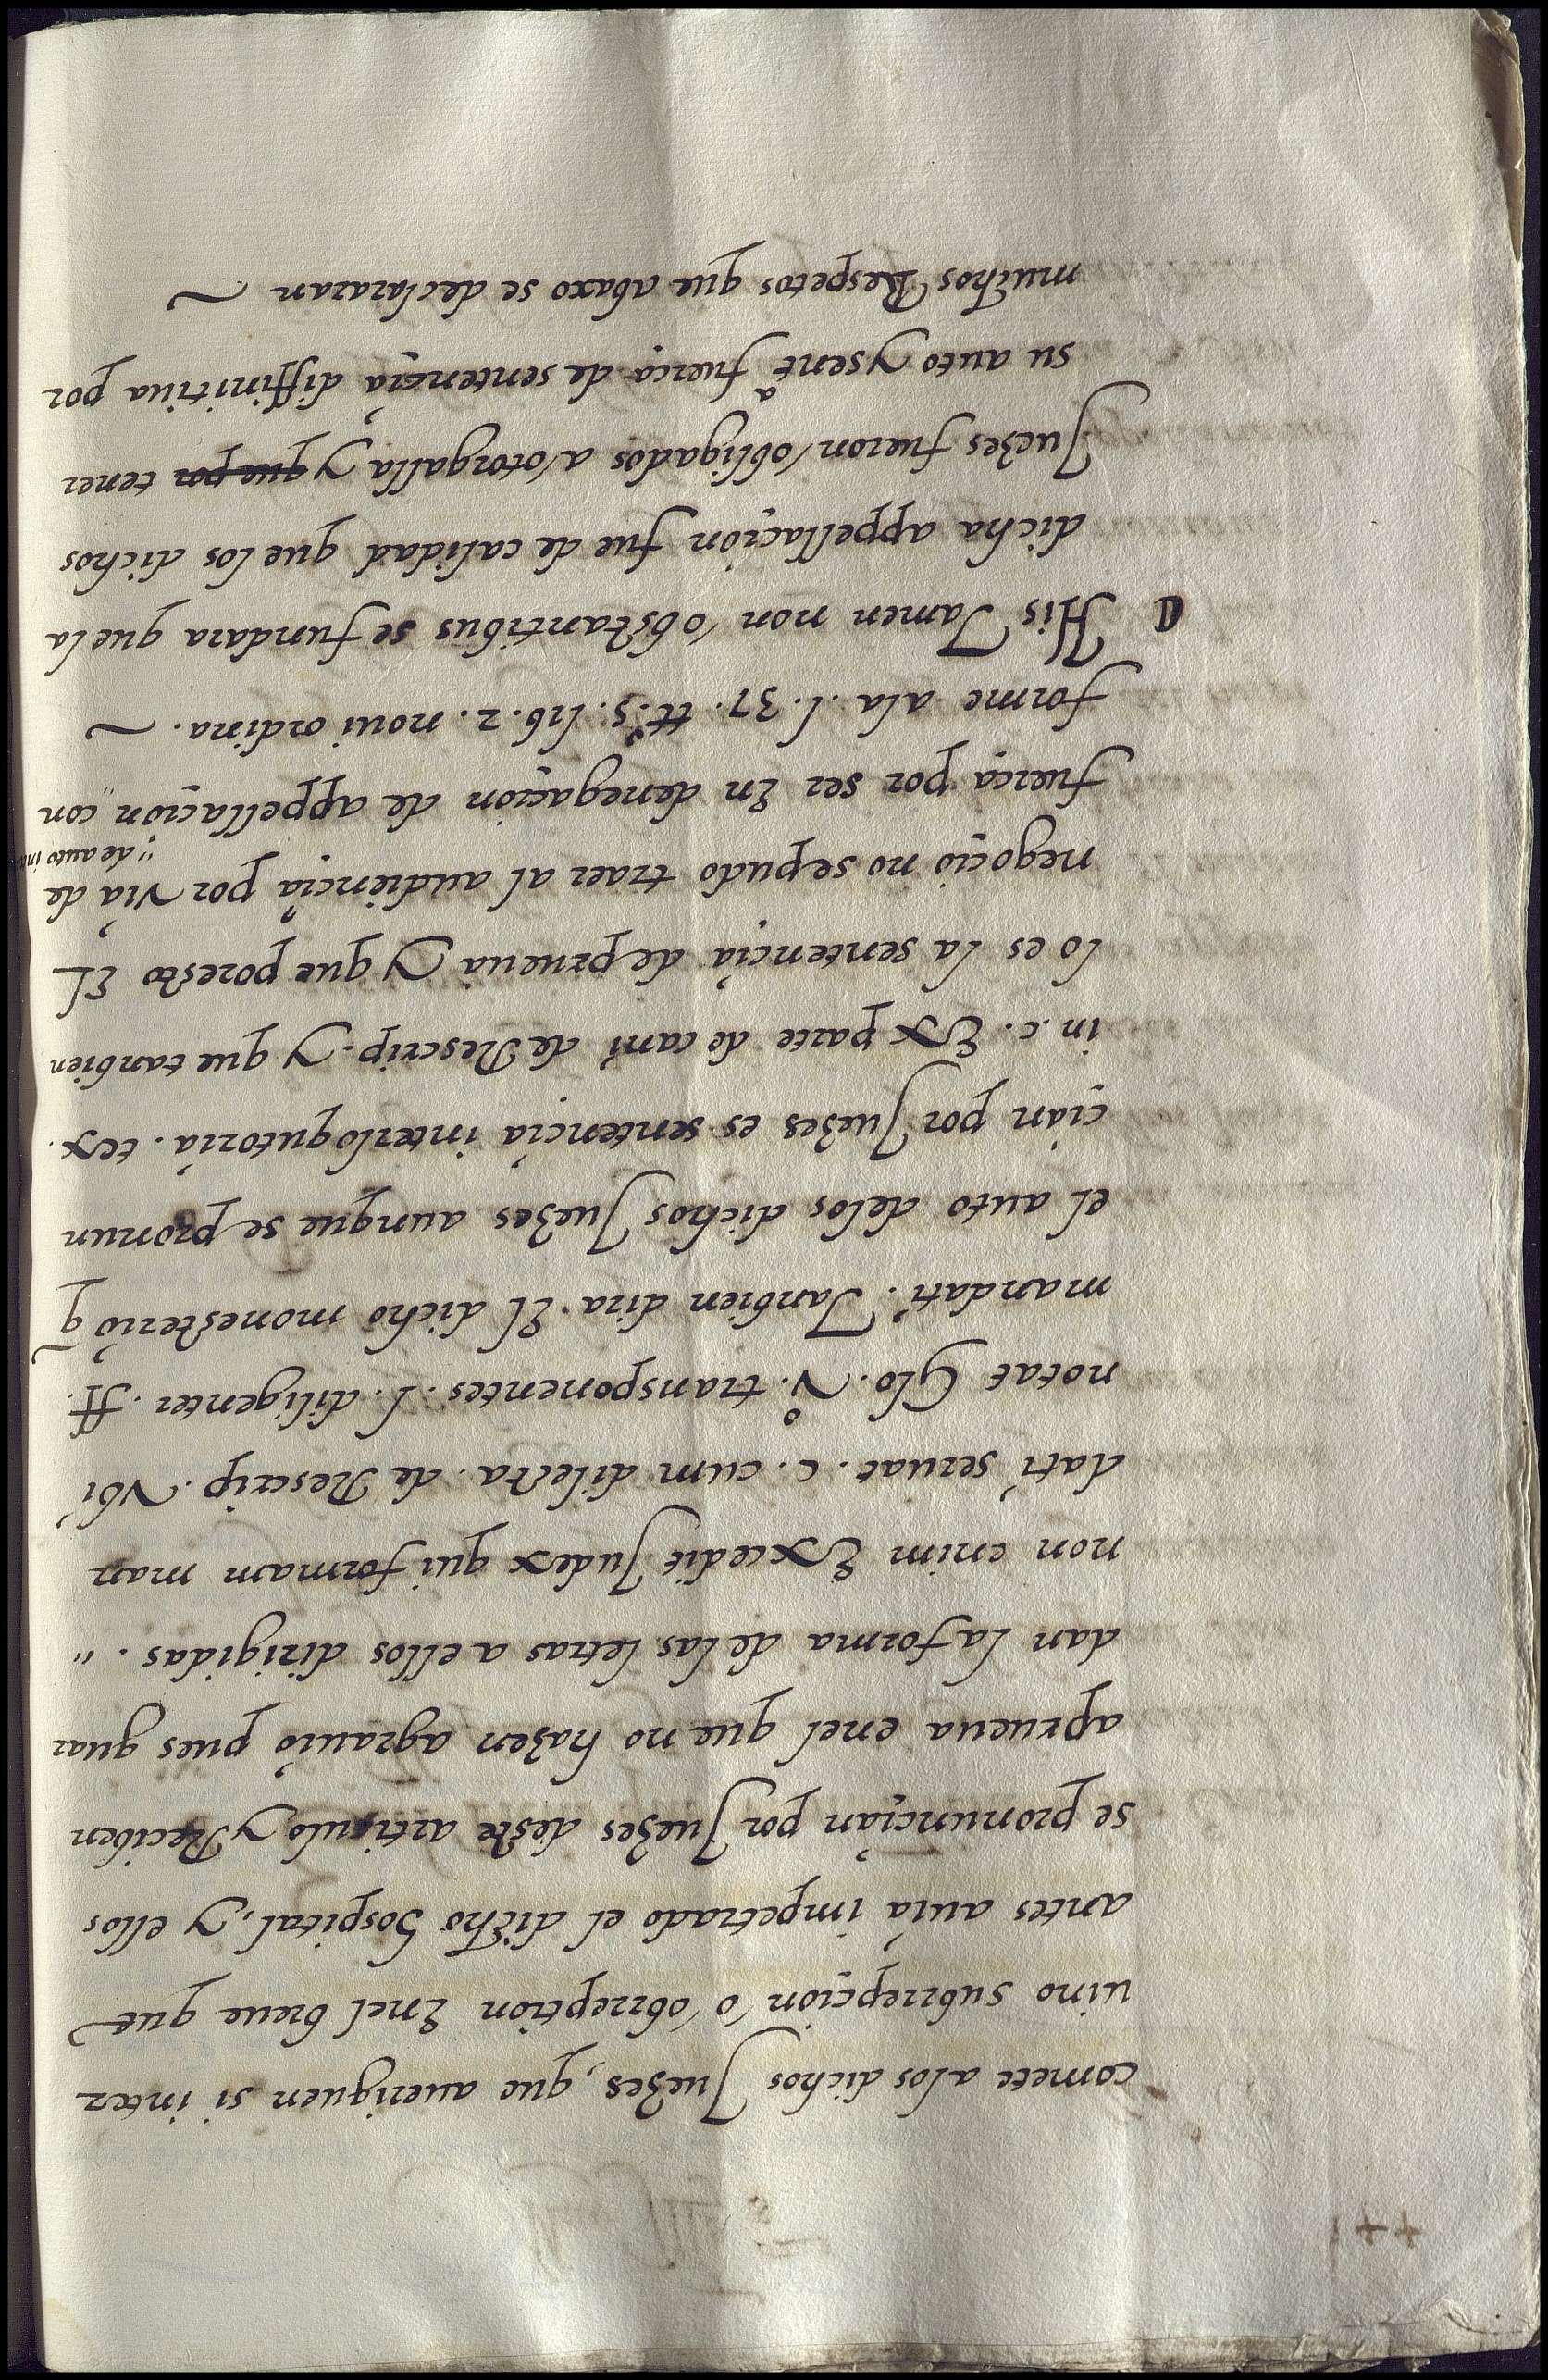 ++
comete alos dichos Juezes, que aueriguen si inter
uino subrrepçion o obrreption Enel breue que
antes auia impetrado el dicho hospital, y ellos
se pronunçian por Juezes deste articulo y Reciben
aprueua enel que no hazen agrauio pues guar
dan la forma de las letras a ellos dirigidas . "
non enim Excedit Judex qui formam man
dati seruat . c . cum dilecta . de Rescrip . Vbi
notat Glo . Vº . transponentes . l . diligenter . ff .
mandati . Tanbien dira . El dicho monesterio q̃
el auto delos dichos Juezes aunque se pronun
çian por Juezes es sentençia interloqutoria . tex .
in . c . Ex parte decani de Rescrip . y que tanbien
lo es la sentençia de prueua y que poresto El
negoçio no se pudo traer al audiençia por via de
"de auto in
fuerça por ser En denegaçion de appellaçion " con
forme ala . l . 37 . tt.º 5 . lib . 2 . noui ordina .
His Tamen non obstantibus se fundara que la
dicha appellaçion fue de calidad que los dichos
Juezes fueron obligados a otorgalla y que por tener
su auto y sentª fuerça de sentençia diffinitiua por
muchos Respetos que abaxo se declararan